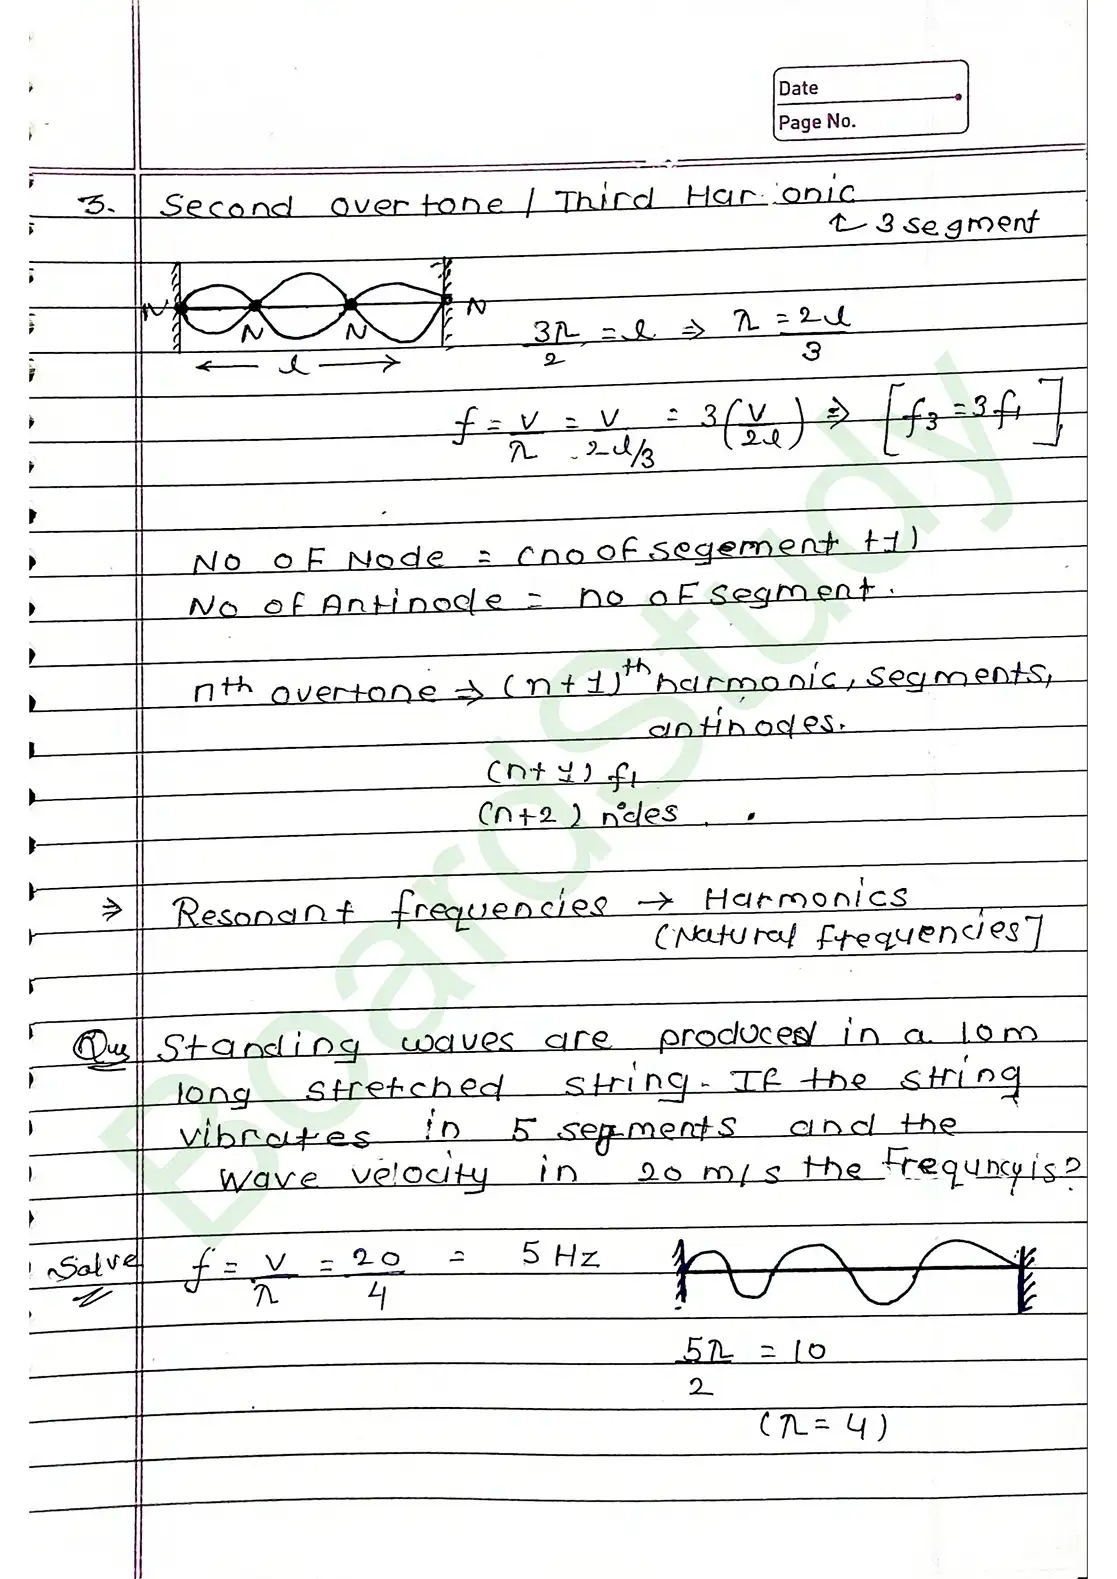 Date
Page No.
3. Second overtone / Third Har onic
↳ 3 segment
N N N N
3λ/2 = l ⇒ λ = 2l/3
← l →
f = v/λ = v/2l/3 = 3(v/2l) ⇒ [f₃ = 3f₁]
No of Node = (no of segement +1)
No of Antinode = no of segment.
nth overtone ⇒ (n+1)th harmonic, segments,
antinodes.
(n+1) f₁
(n+2) nodes.
⇒ Resonant frequencies → Harmonics
(Natural frequencies]
Ques Standing waves are produced in a 10m
long stretched string. If the string
vibrates in 5 segments and the
wave velocity in 20 m/s the Frequncy is?
Solve f = v/λ = 20/4 = 5 Hz
5λ/2 = 10
(λ = 4)
BoardStudy